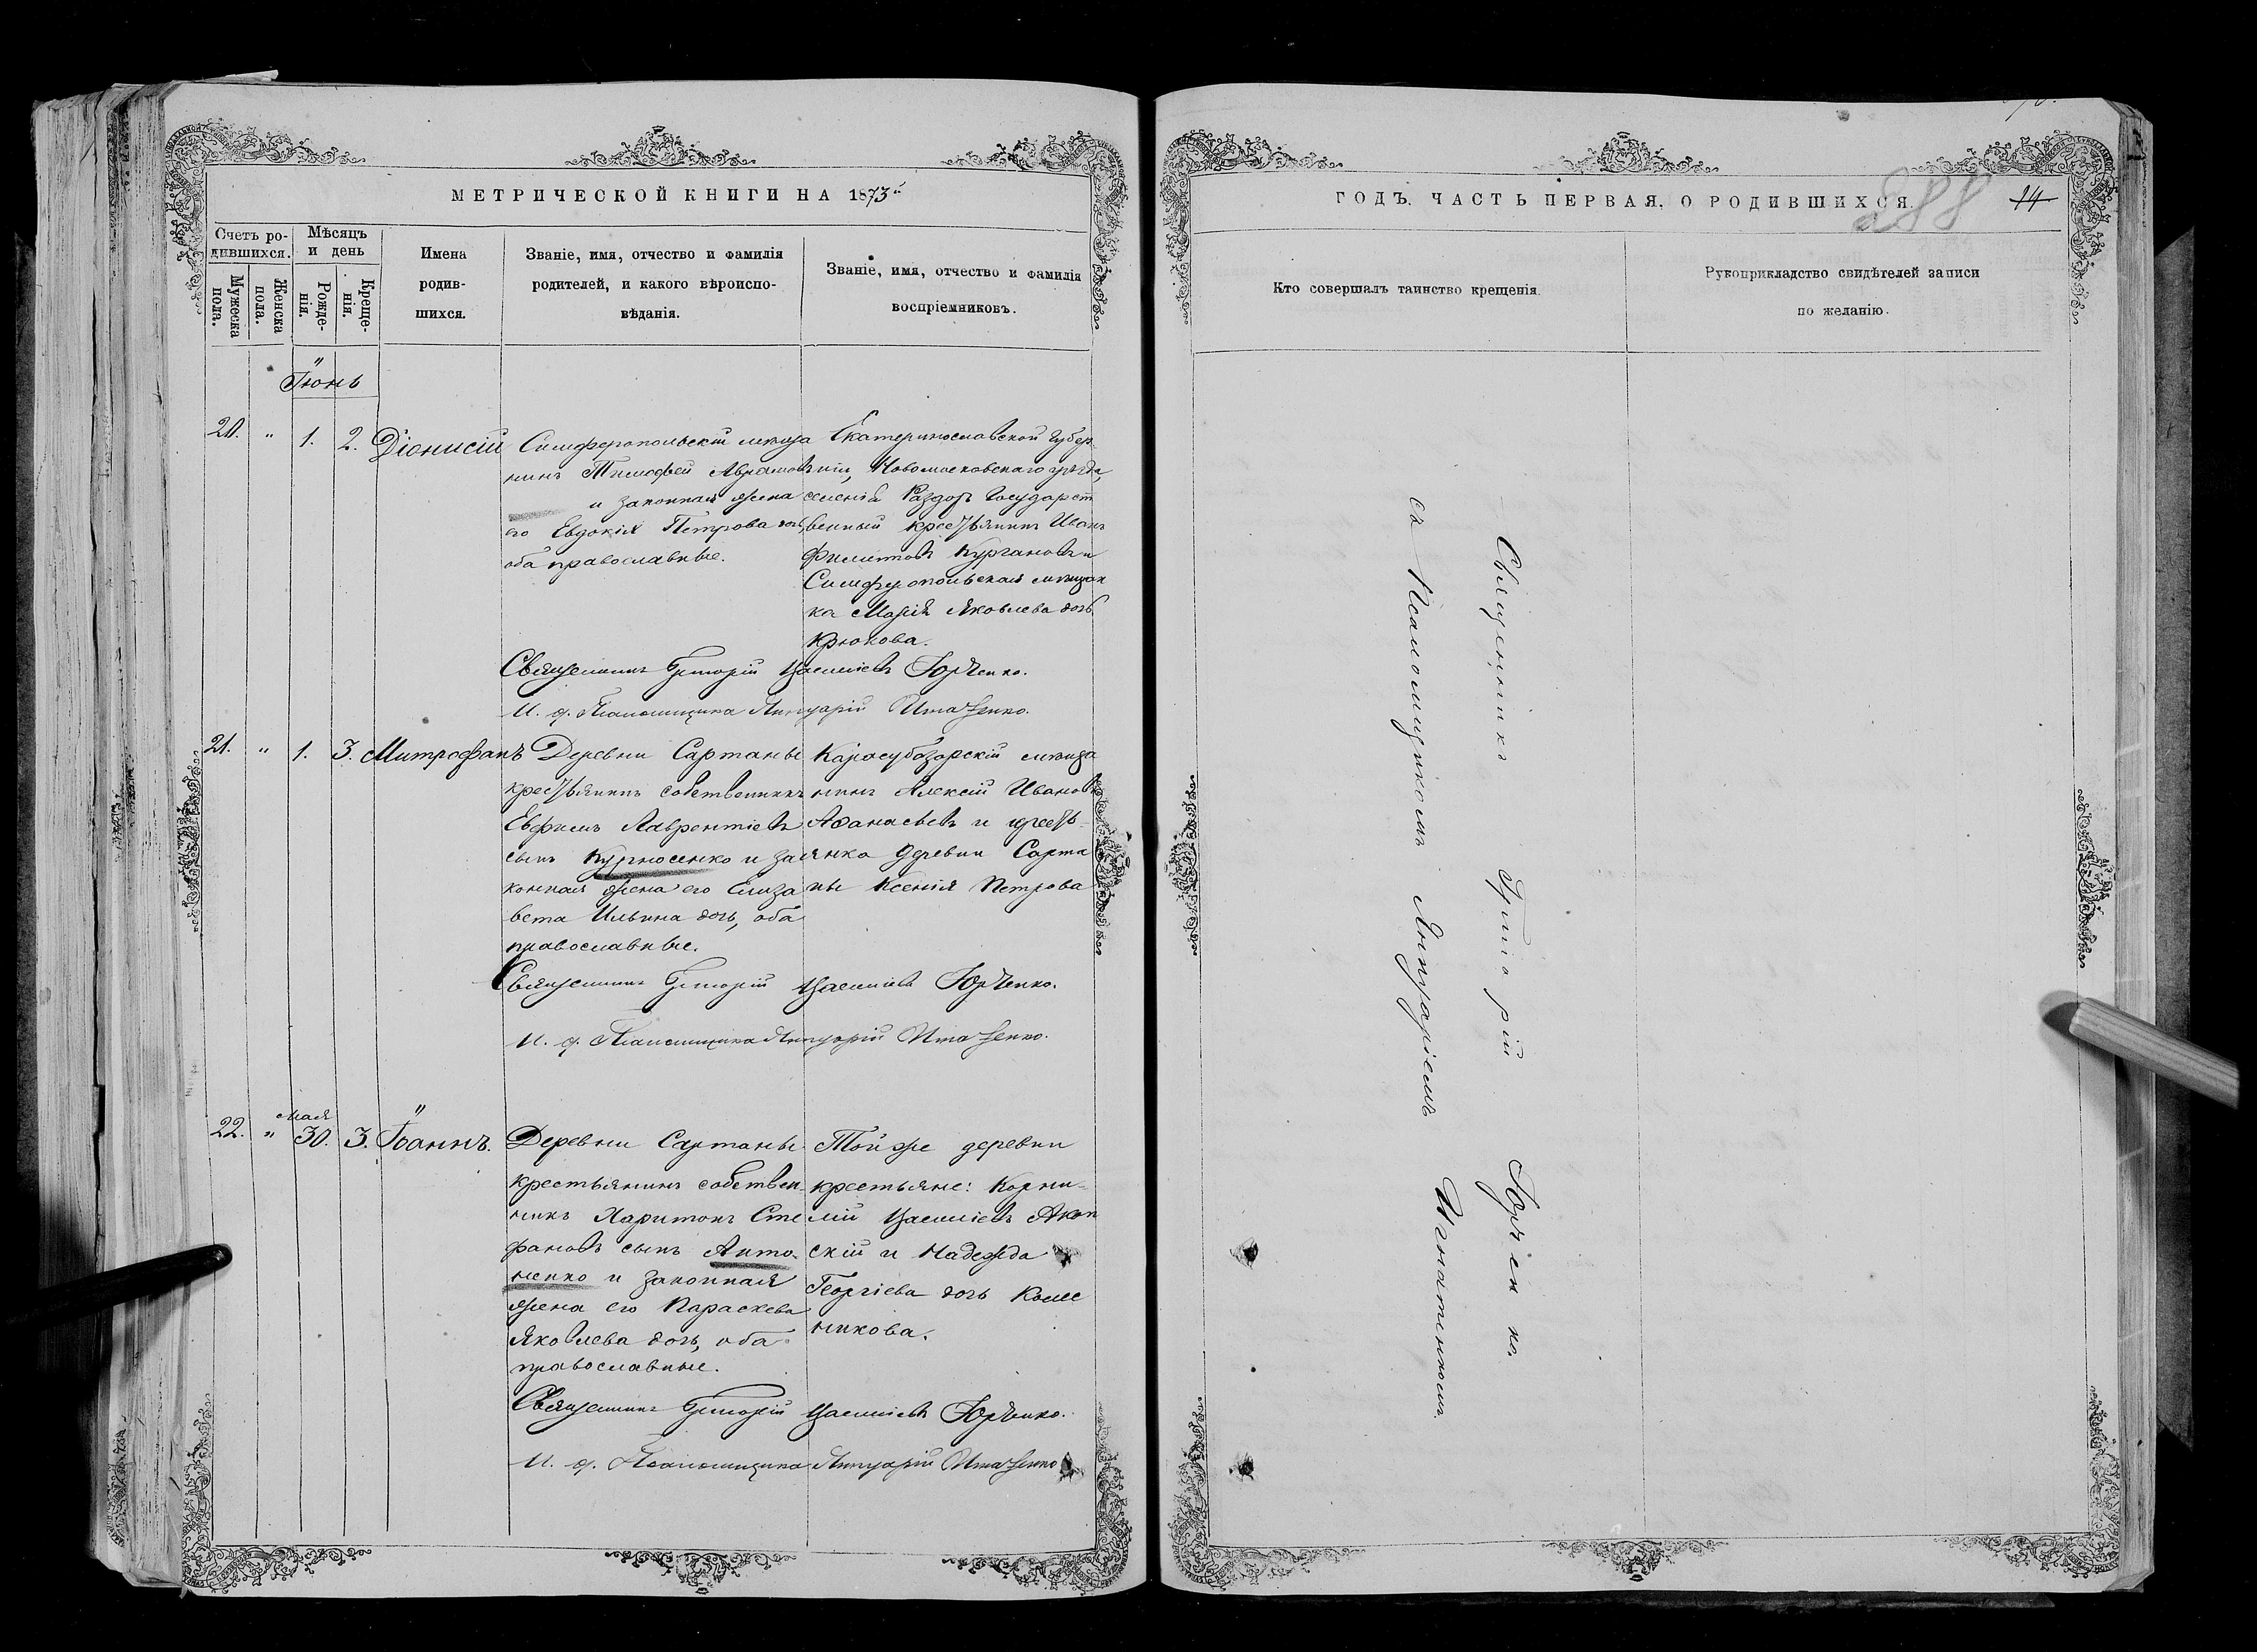 МЕТРИЧЕСКОЙ КНИГИ НА 1873й
Счетъ ро-
дившихся.
Мѣсяцъ
и день
Мужеска
пола.
Женска
пола.
Рожде-
нія.
Креще-
нія.
Имена
родив-
шихся.
Званіе, имя, отчество и фамилія
родителей, и какого вѣроиспо-
вѣданія.
Званіе, имя, отчество и фамилія
воспріемниковъ.
Іюнь
20. " 1. 2. Діонисій
Симферопольскій мѣща
нинъ Тимофей Авраамовъ
и законная жена
его Евдокія Петрова дочь,
оба православные.
Екатеринославской губер
ніи, Новомосковскаго уѣзда,
селенія Раздоръ Государст
венный крестьянинъ Иванъ
Филитовъ Кургановъ и
Симферопольская мѣщан
ка Марія Яковлева дочь
Крюкова.
Священникъ Григорій Васильевъ Юрченко.
И. д. Псаломщика Яннуарій Игнатенко.
21. " 1. 3. Митрофанъ
Деревни Сартаны
крестьянинъ собственникъ
Евфимъ Лаврентіевъ
сынъ Курносенко и за
конная жена его Елиза
вета Ильина дочь, оба
православные.
Карасубазарскій мѣща
нинъ Алексій Ивановъ
Аѳанасьевъ и кресть-
янка деревни Сарта
ны Ксенія Петрова
Священникъ Григорій Васильевъ Юрченко.
И. д. Псаломщика Яннуарій Игнатенко.
22. " Мая 30. 3. Іоаннъ.
Деревни Сартаны
крестьянинъ собствен-
никъ Харитонъ Сте
фановъ сынъ Анто-
ненко и законная
жена его Параскева
Яковлева дочь, оба
православные.
Той же деревни
крестьяне: Корни-
лій Васильевъ Акоп
скій и Надежда
Георгіева дочь Колес
никова.
Священникъ Григорій Васильевъ Юрченко.
И. д. Псаломщика Яннуарій Игнатенко
ГОДЪ, ЧАСТЬ ПЕРВАЯ, О РОДИВШИХСЯ.
288
14
Кто совершалъ таинство крещенія.
Рукоприкладство свидѣтелей записи
по желанію.
Священникъ Григорій Юрченко.
съ Псаломщикомъ Яннуаріемъ Игнатенкомъ.